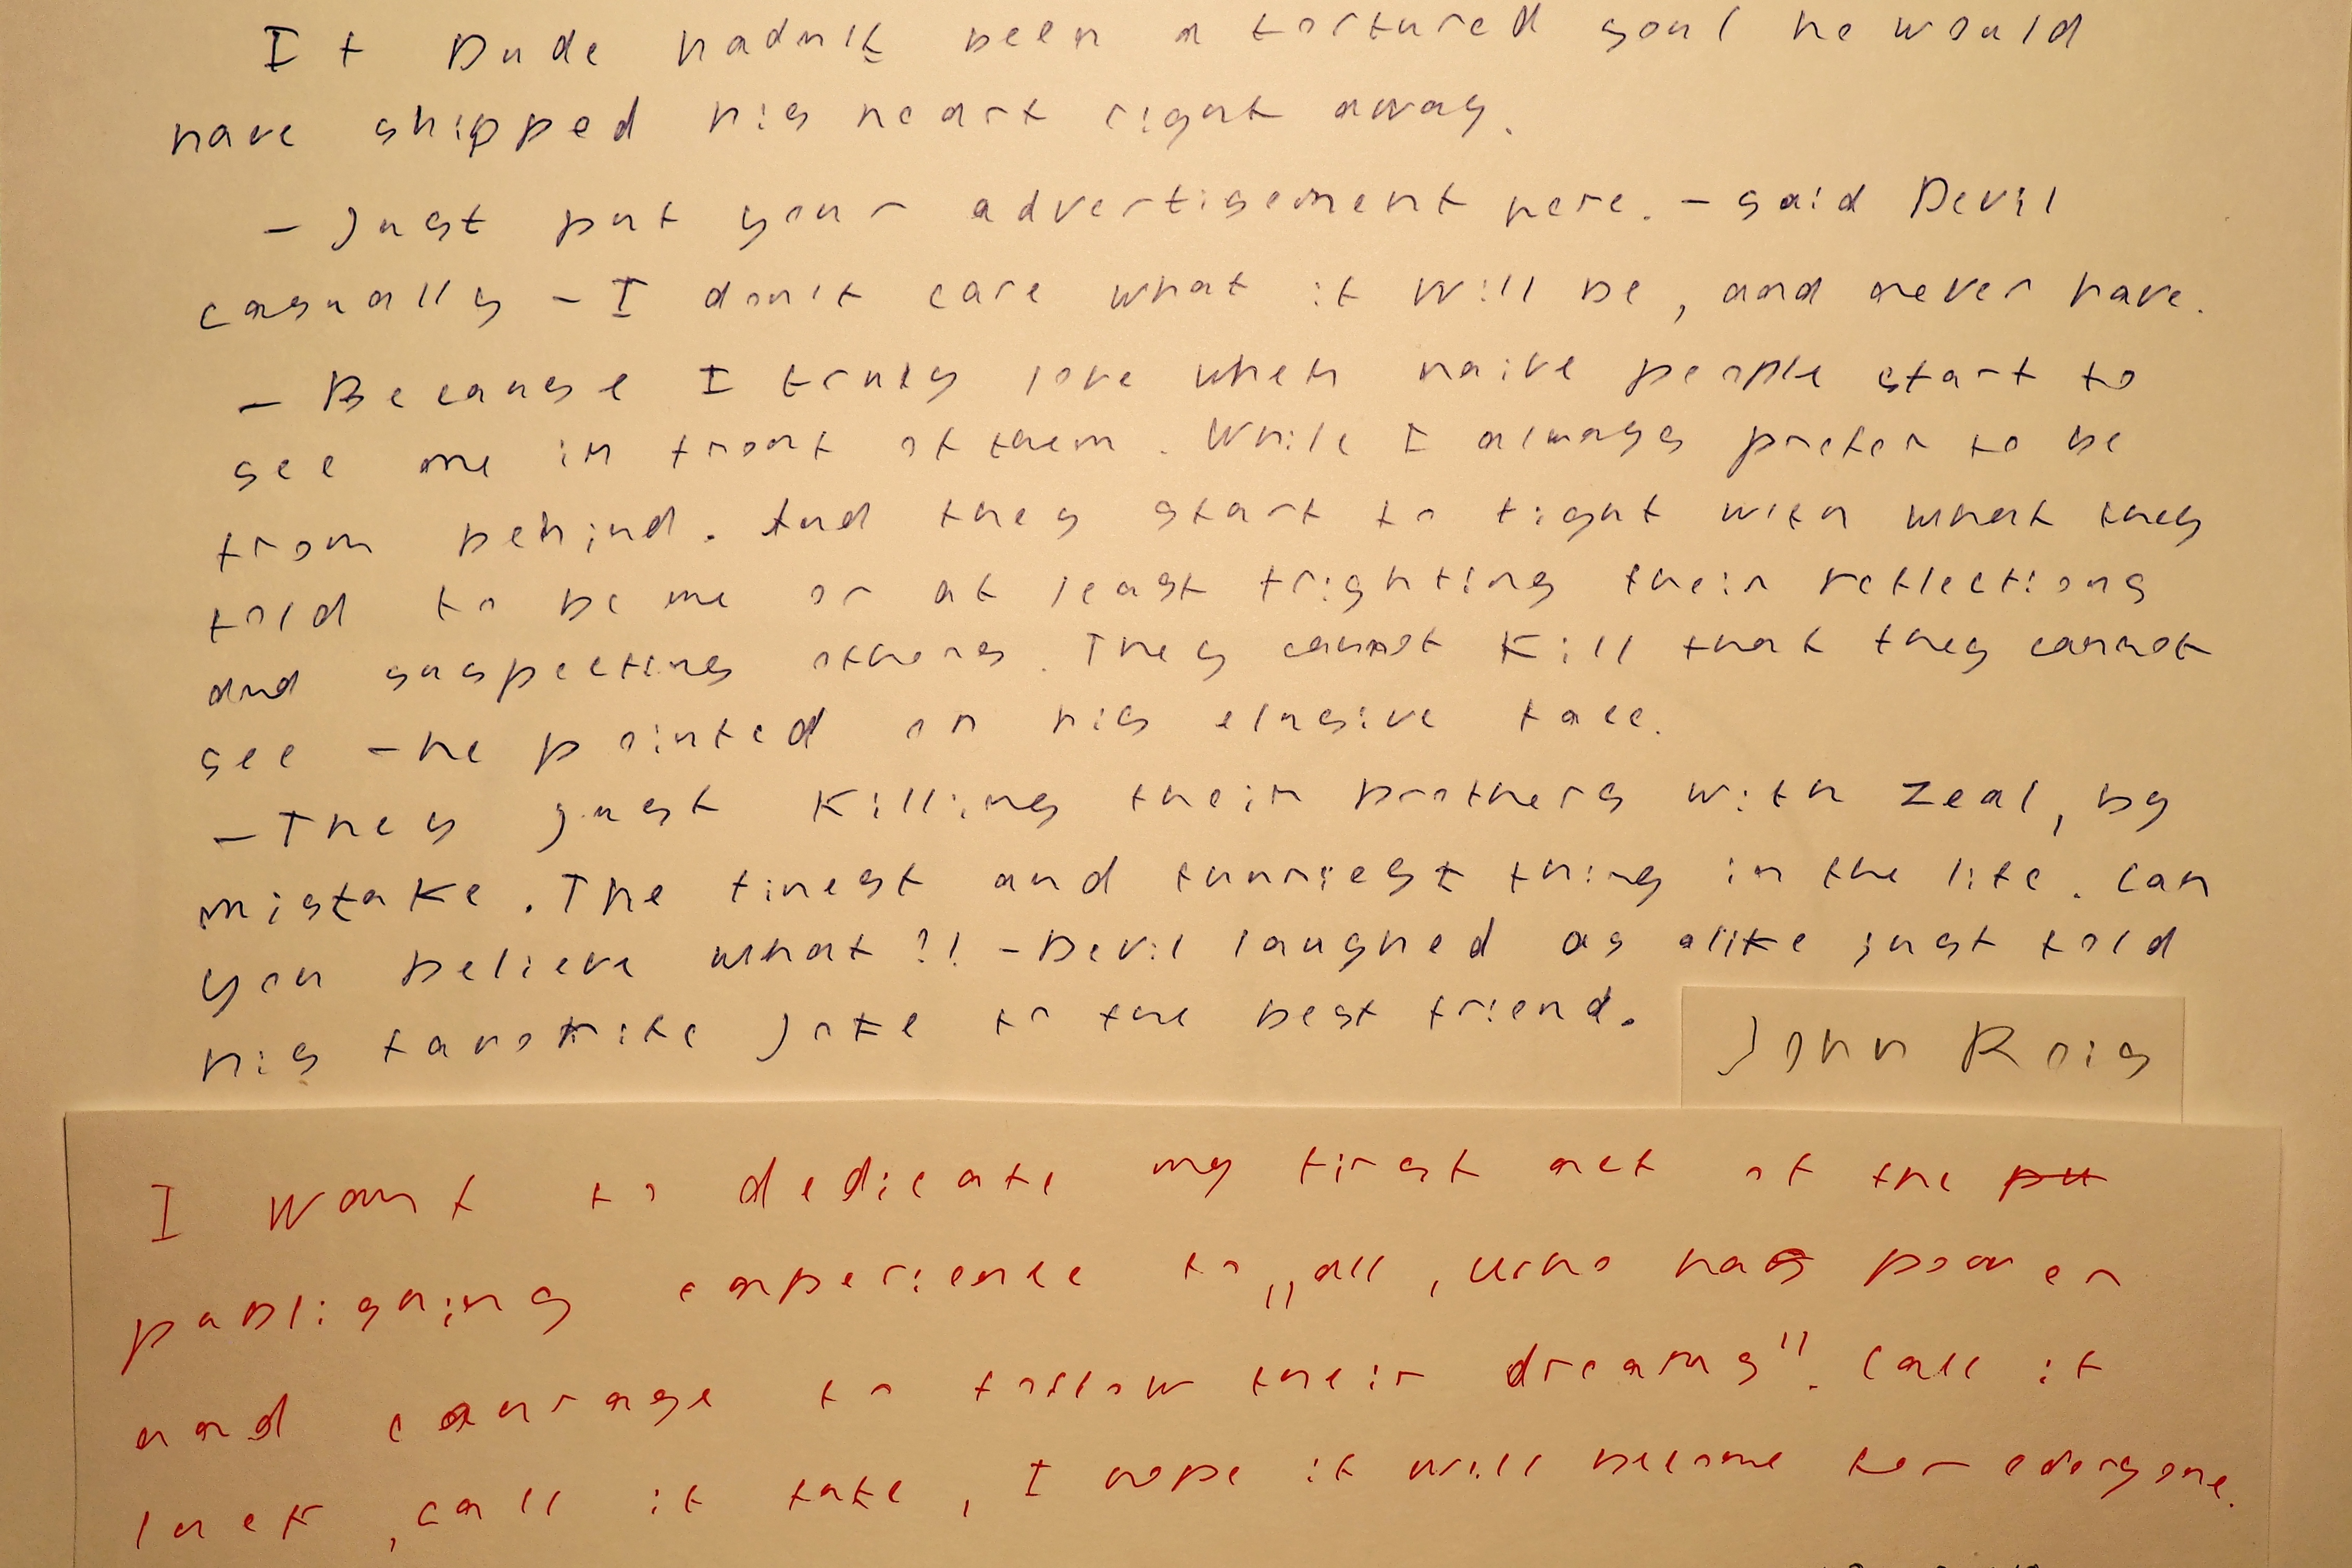 If Dude hadn't been a tortured soul he would
have shipped his heart right away.
- Just put your advertisement here. - said Devil
casually - I don't care what it will be, and never have.
- Because I truly love when naive people start to
see me in front of them. While I always prefer to be
from behind. And they start to fight with what they
told to be me or at least frighting their reflections
and suspecting others. They cannot kill that they cannot
see - he pointed on his elusive face.
- They just killing their brothers with zeal, by
mistake. The finest and funniest thing in the life. Can
you believe what?! - Devil laughed as alike just told
his favorite joke to the best friend.
John Rois
I want to dedicate my first act of the
publishing experience to „all, who has power
and courage to follow their dreams". Call it
luck, call it fate, I hope it will become for everyone.